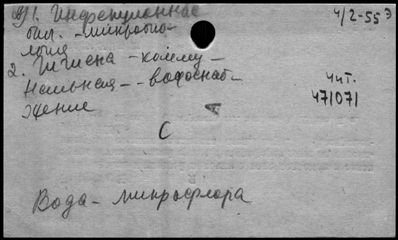 1. Инфекционные
бол. - микробио-
логия
2. Гигиена - комму-
нальная - водоснаб-
жение
4/2-55
чит.
471071
С
А
Вода - микрофлора